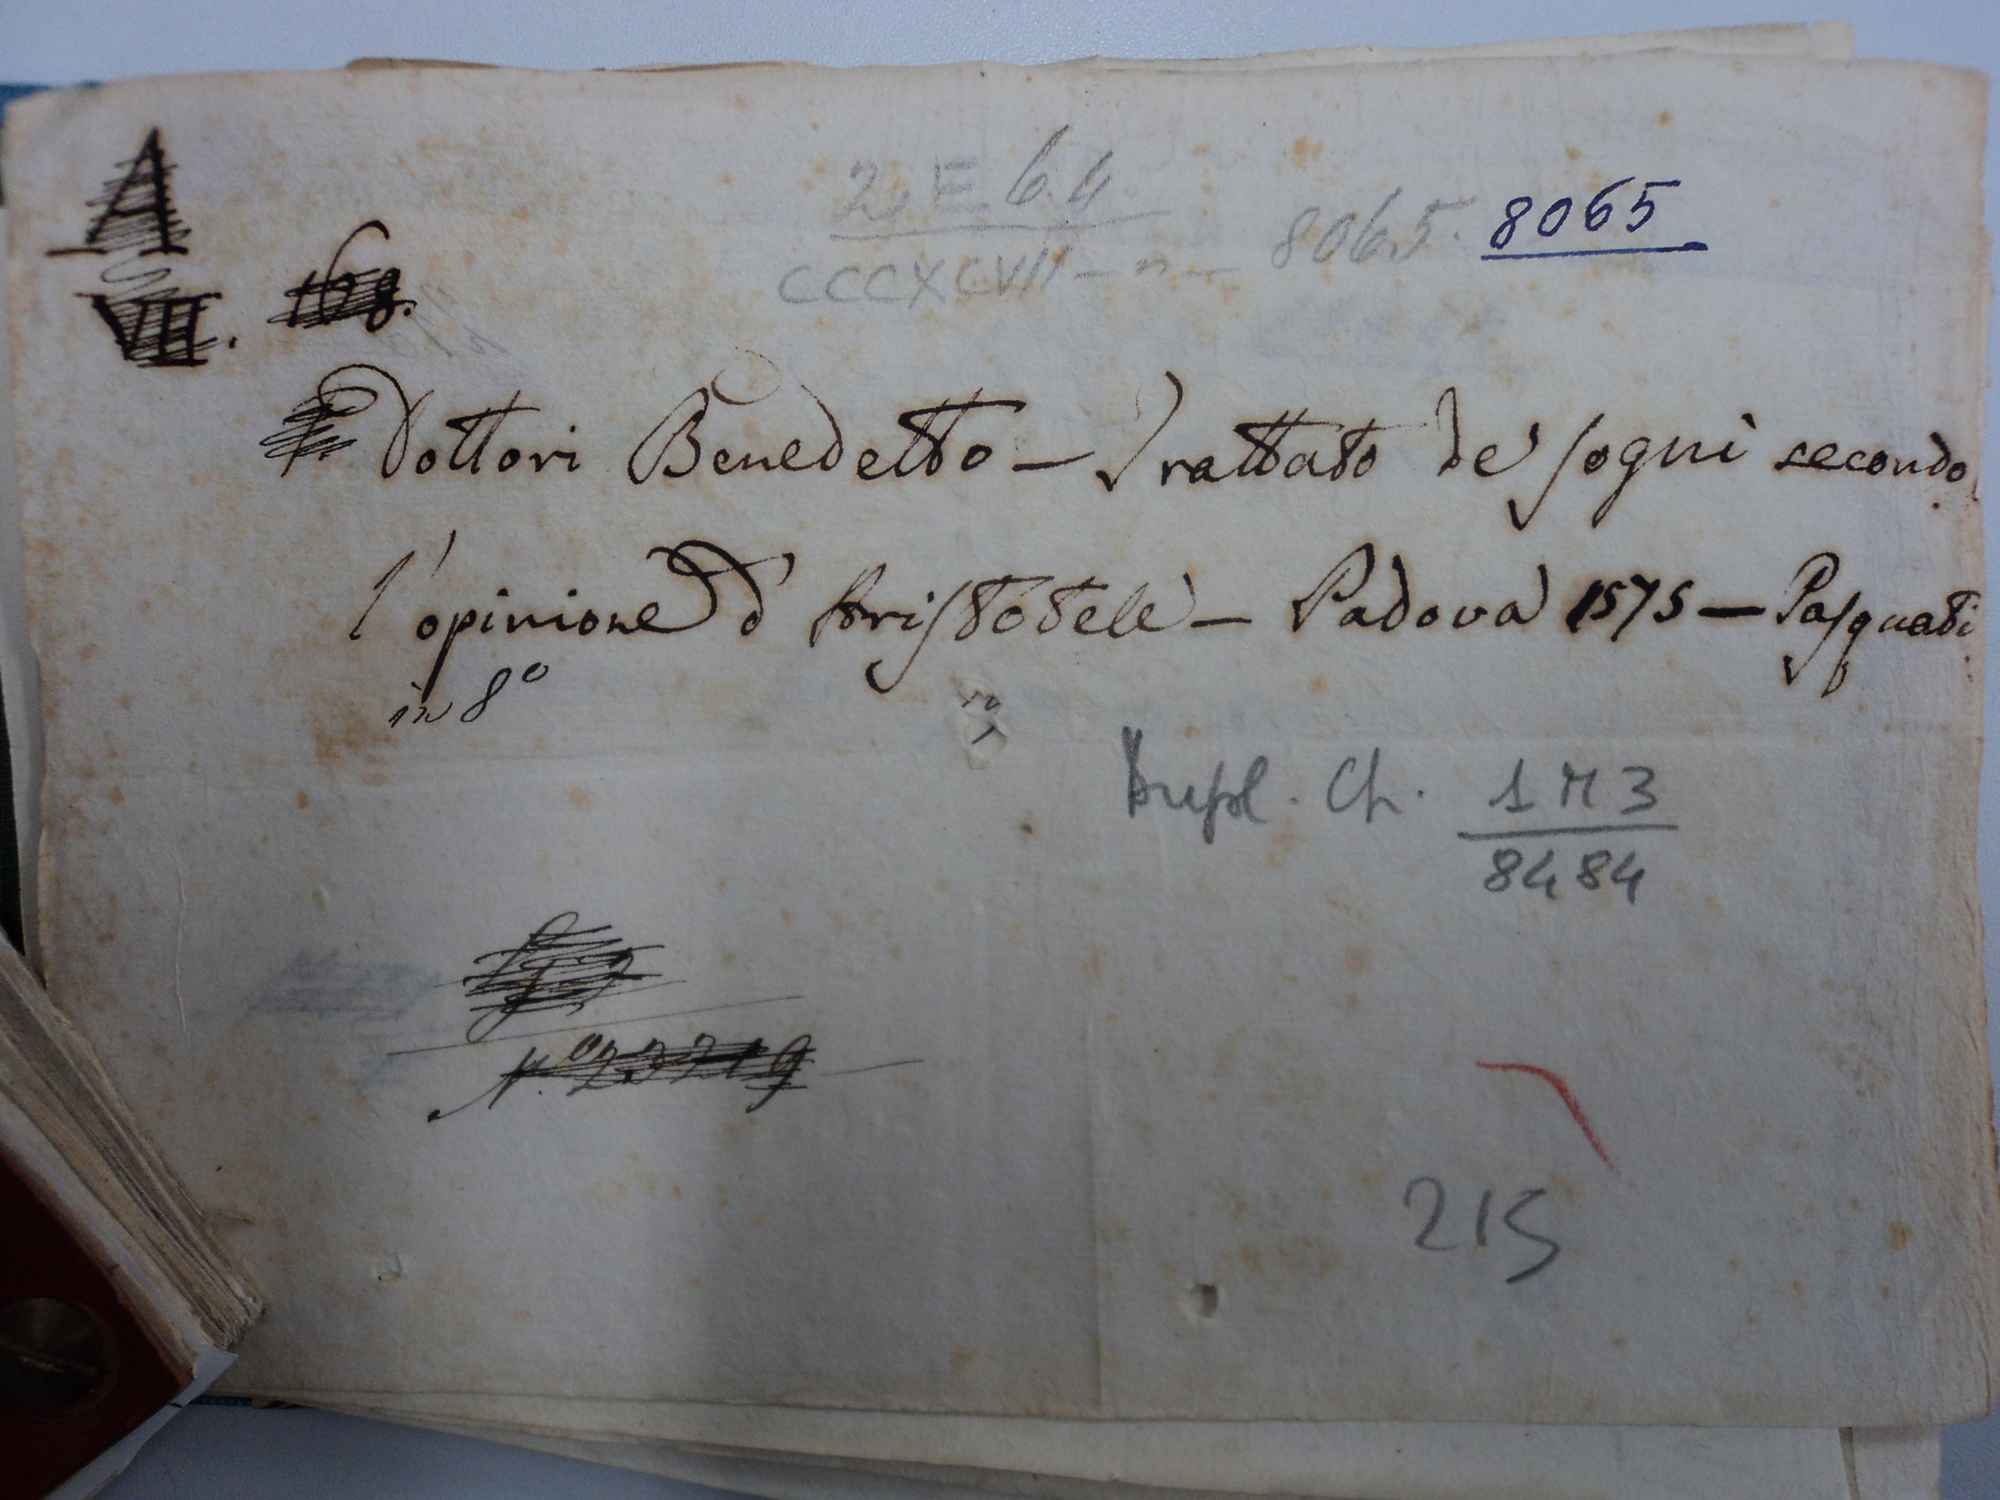 A
VII. 168.
2, F. 6. 4.
CCCXCVII - n - 8065. 8065
Dottori Benedetto - Trattato de' sogni secondo
l'opinione d'Aristotele - Padova 1575 - Pasquati
in 8°
Dupl. Ch. 1 M 3
8484
N.° 23219
215